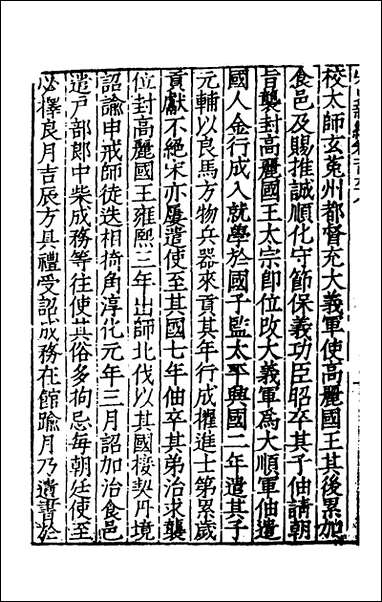 校太師玄菟州都督充大義軍使高麗國王其後累加
食邑及賜推誠順化守節保義功臣昭卒其子伷請朝
旨襲封高麗國王太宗卽位改大義軍爲大順軍伷遣
國人金行成入就學於國子監太平興國二年遣其子
元輔以良馬方物兵器來貢其年行成擢進士第累歲
貢獻不絕宋亦屢遣使至其國七年伷卒其弟治求襲
位封高麗國王雍熙三年出師北伐以其國接契丹境
詔諭申戒師徒迭相掎角淳化元年三月詔加治食邑
遣戶部郎中柴成務等往使其俗多拘忌每朝廷使至
必擇良月吉辰方具禮受詔成務在館踰月乃遺書於